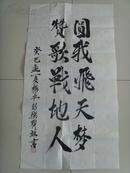 圆我飞天梦
赞歌战地人
癸巳之夏
书